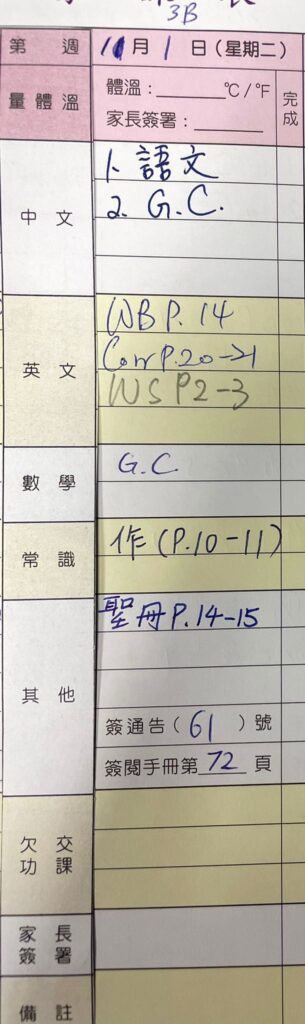 3B
第 週 11月1日(星期二)
量體溫 體溫:______°C/°F 完成
家長簽署:______
中文 1. 語文
2. G.C.
英文 WB P. 14
Corr P.20→21
WS P2-3
數學 G.C
常識 作(P.10-11)
其他 聖冊P.14-15
簽通告(61)號
簽閱手冊第72頁
欠交功課
家長簽署
備註